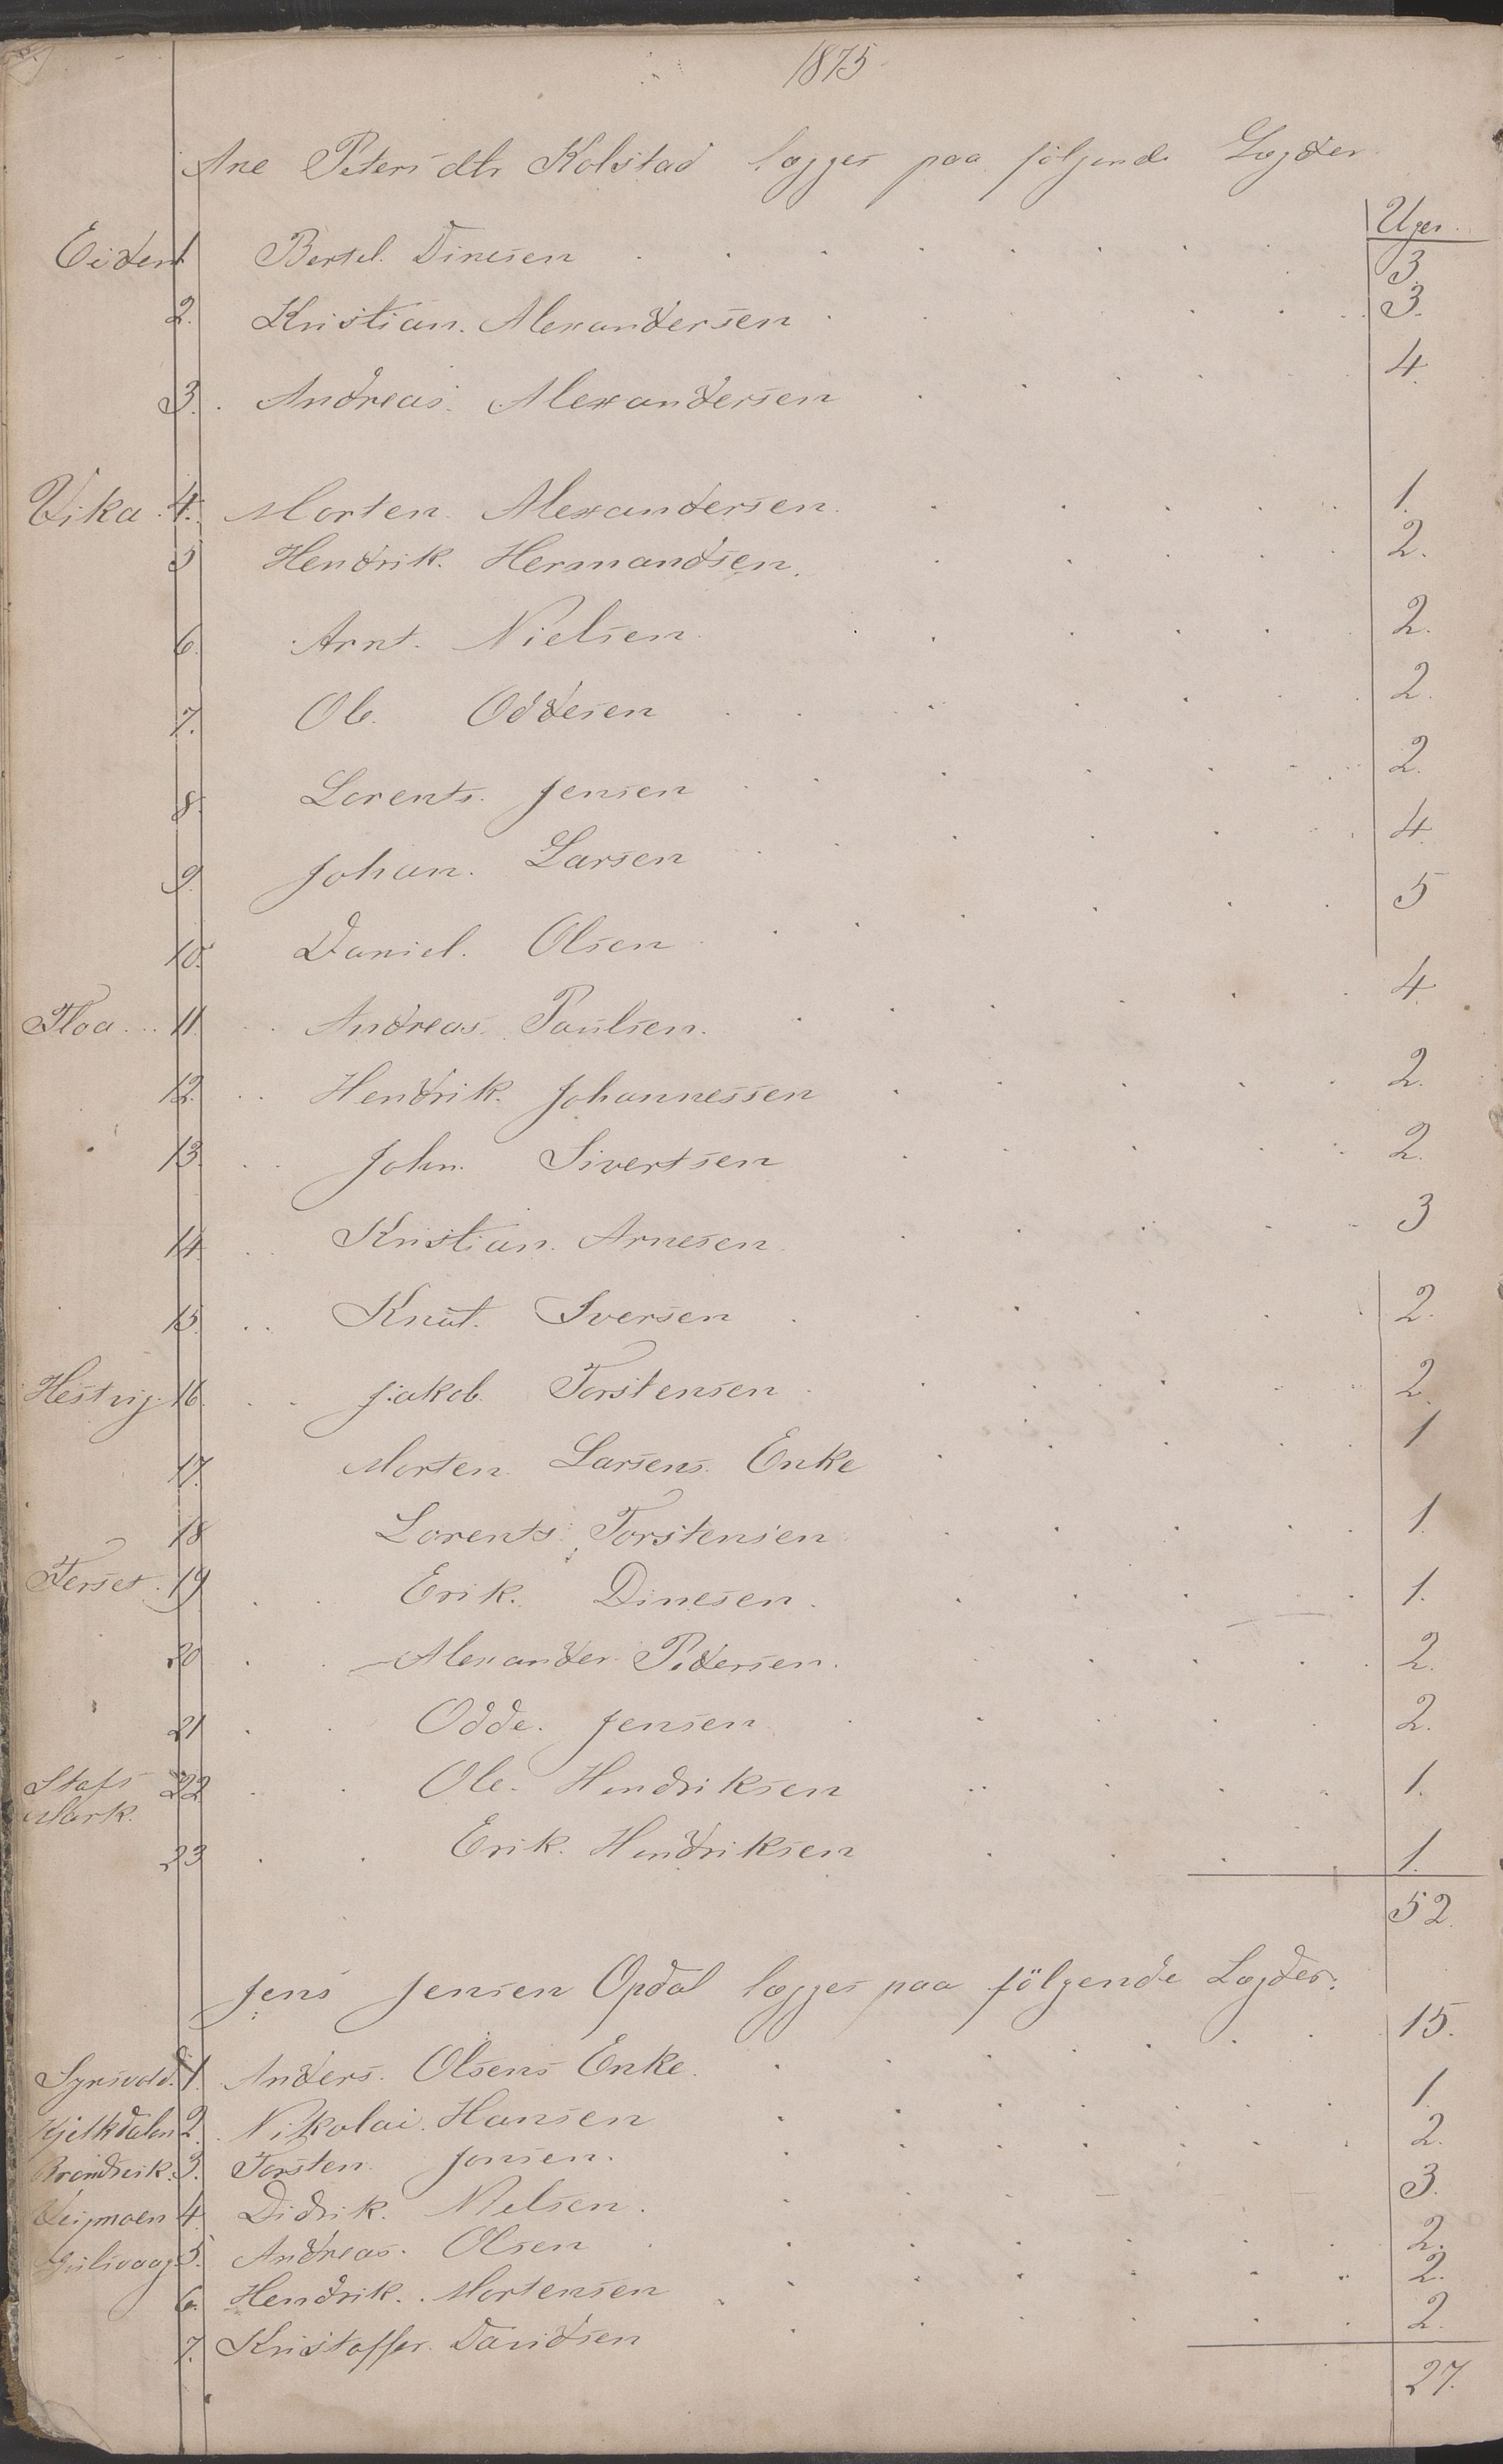 1875
Ane Petersdtr Kolstad lægges paa følgende Lægder
Uger.
Eidem 1 Bertel. Dinesen 3.
2. Kristian. Alexandersen 3.
3. Andreas. Alexandersen 4.
Vika 4. Morten. Alexandersen. 1.
5 Hendrik. Hermandsen. 2.
6. Arnt. Nielsen 2.
7. Ole. Oddesen 2.
8. Lorents. Jensen 2.
9. Johan. Larsen 4.
10. Daniel. Olsen 5
Floa 11. Andreas. Paulsen. 4.
12. Hendrik. Johannessen 2.
13. John. Sivertsen 2.
14. Kristian. Arnesen 3
15. Knut. Iversen 2.
Hestvig. 16. Jakob Torstensen 2.
17. Morten. Larsens. Enke 1
18 Lorents. Torstensen 1.
Ferset. 19 Erik. Dinesen. 1.
20 Alexander Pedersen. 2.
21 Odde. Jensen 2.
Stafs 22 Ole. Hendriksen 1.
Mark.
23 Erik. Hendriksen 1.
52.
Jens Jensen Opdal lægges paa følgende Lægder:
1. Anders. Olsens Enke. 15.
2. Nikolai. Hansen 1.
3. Torsten. Jonsen. 2.
4. Didrik. Nielsen. 3.
5. Andreas. Olsen 2.
6. Hendrik. Mortensen 2.
7. Kristoffer. Davidsen 2.
27.